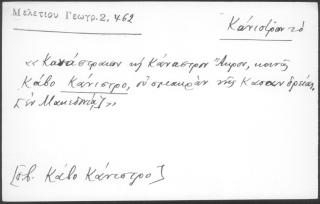 Μελετίου Γεωγρ. 2, 462
Κάνιστρον τό
« Κανάστραιον κὴ Κάναστρον Ἄκρον, κοινῶς
Κάβο Κάνιστρο, οὐ μακρὰν τῆς Κασσανδρείας
[ἐν Μακεδονίᾳ] »
[σ.β. Κάβο Κάνιστρο]